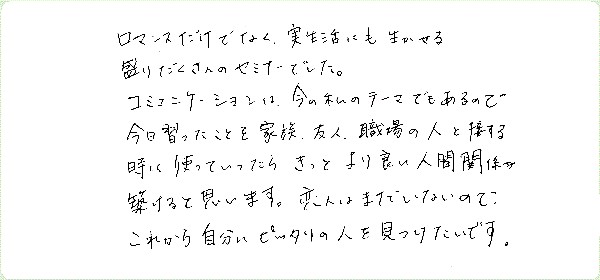 ロマンスだけでなく、実生活にも生かせる
盛りだくさんのセミナーでした。
コミュニケーションは、今の私のテーマでもあるので
今日習ったことを家族、友人、職場の人と接する
時に使っていったらきっとより良い人間関係が
築けると思います。恋人はまだいないので、
これから自分にピッタリの人を見つけたいです。